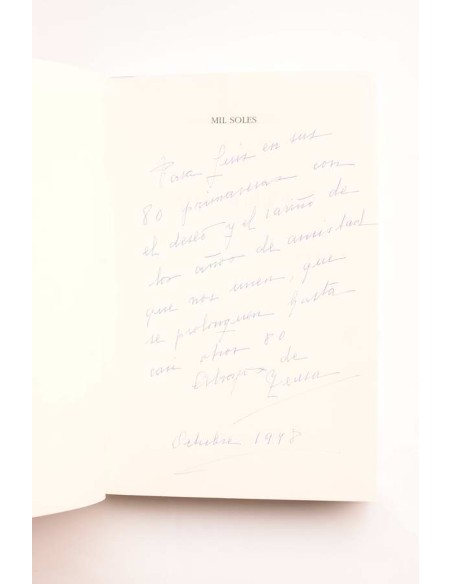 MIL SOLES
Para Luis en sus
80 primaveras con
el deseo y el cariño de
los años de amistad
que nos unen, que
se prolonguen hasta
con otros 80
Abrazos de
Octubre 199